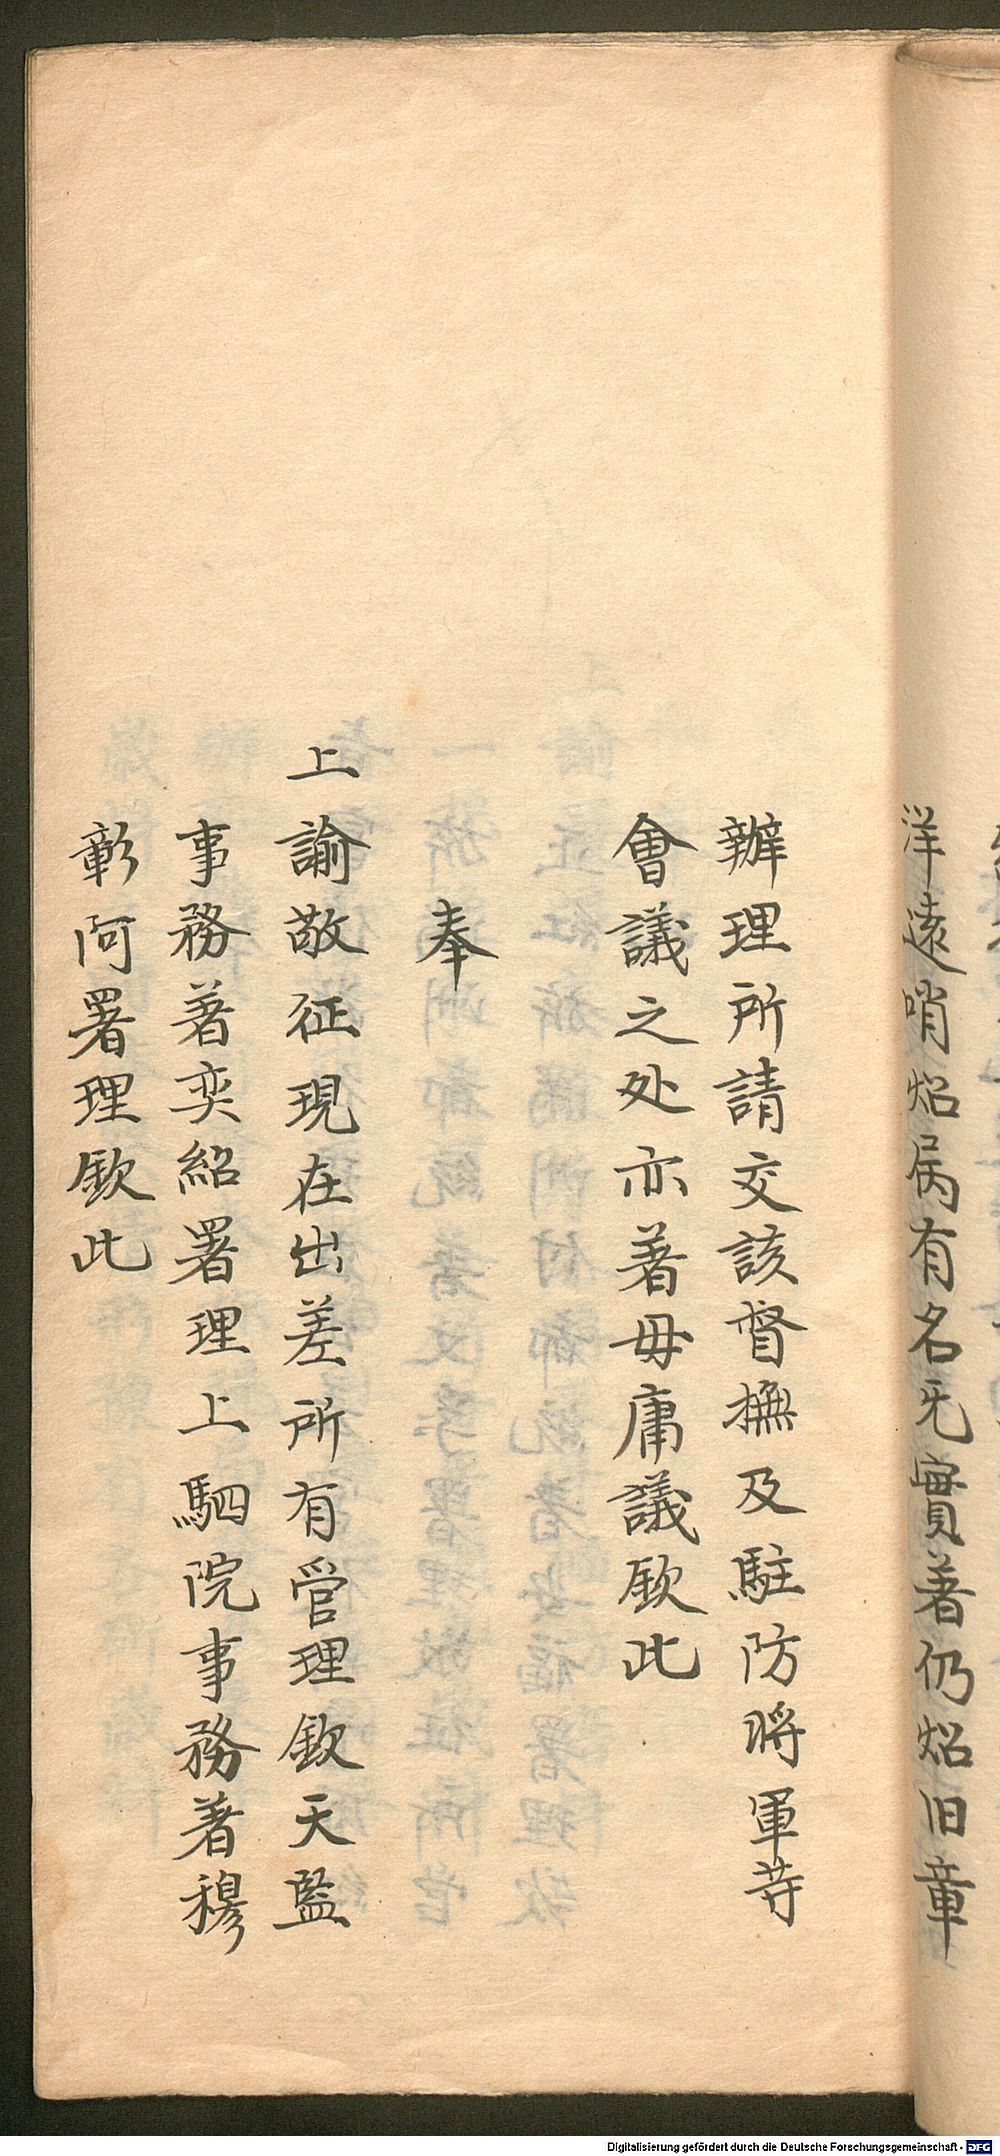 洋遠哨焰屙有名旡實著仍焰旧章
辦理所請交該督撫及駐防將軍䒭
會議之处亦著毋庸議欽此
奉
上諭敬征現在出差所有管理欽天監
事務著奕紹署理上駟院事務著穆
彰阿署理欽此
Digitalisierung gefördert durch die Deutsche Forschungsgemeinschaft - DFG